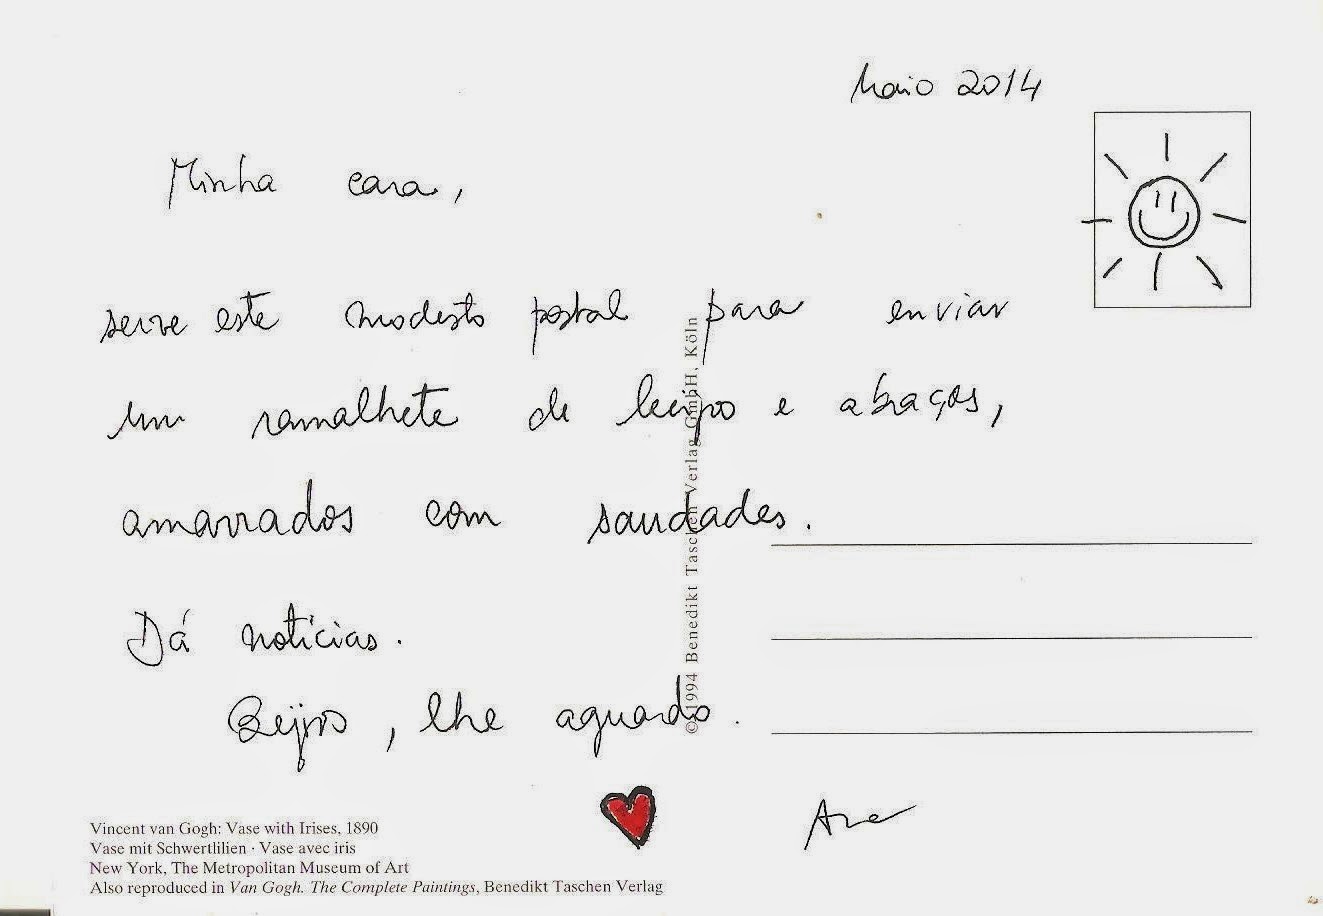 Maio 2014
Minha cara,
serve este modesto postal para enviar
um ramalhete de beijo e abraços,
amarrados com saudades.
Dá notícias.
Beijos, lhe aguardo.
Ana
©1994 Benedikt Taschen Verlag GmbH, Köln
Vincent van Gogh: Vase with Irises, 1890
Vase mit Schwertlilien · Vase avec iris
New York, The Metropolitan Museum of Art
Also reproduced in Van Gogh. The Complete Paintings, Benedikt Taschen Verlag